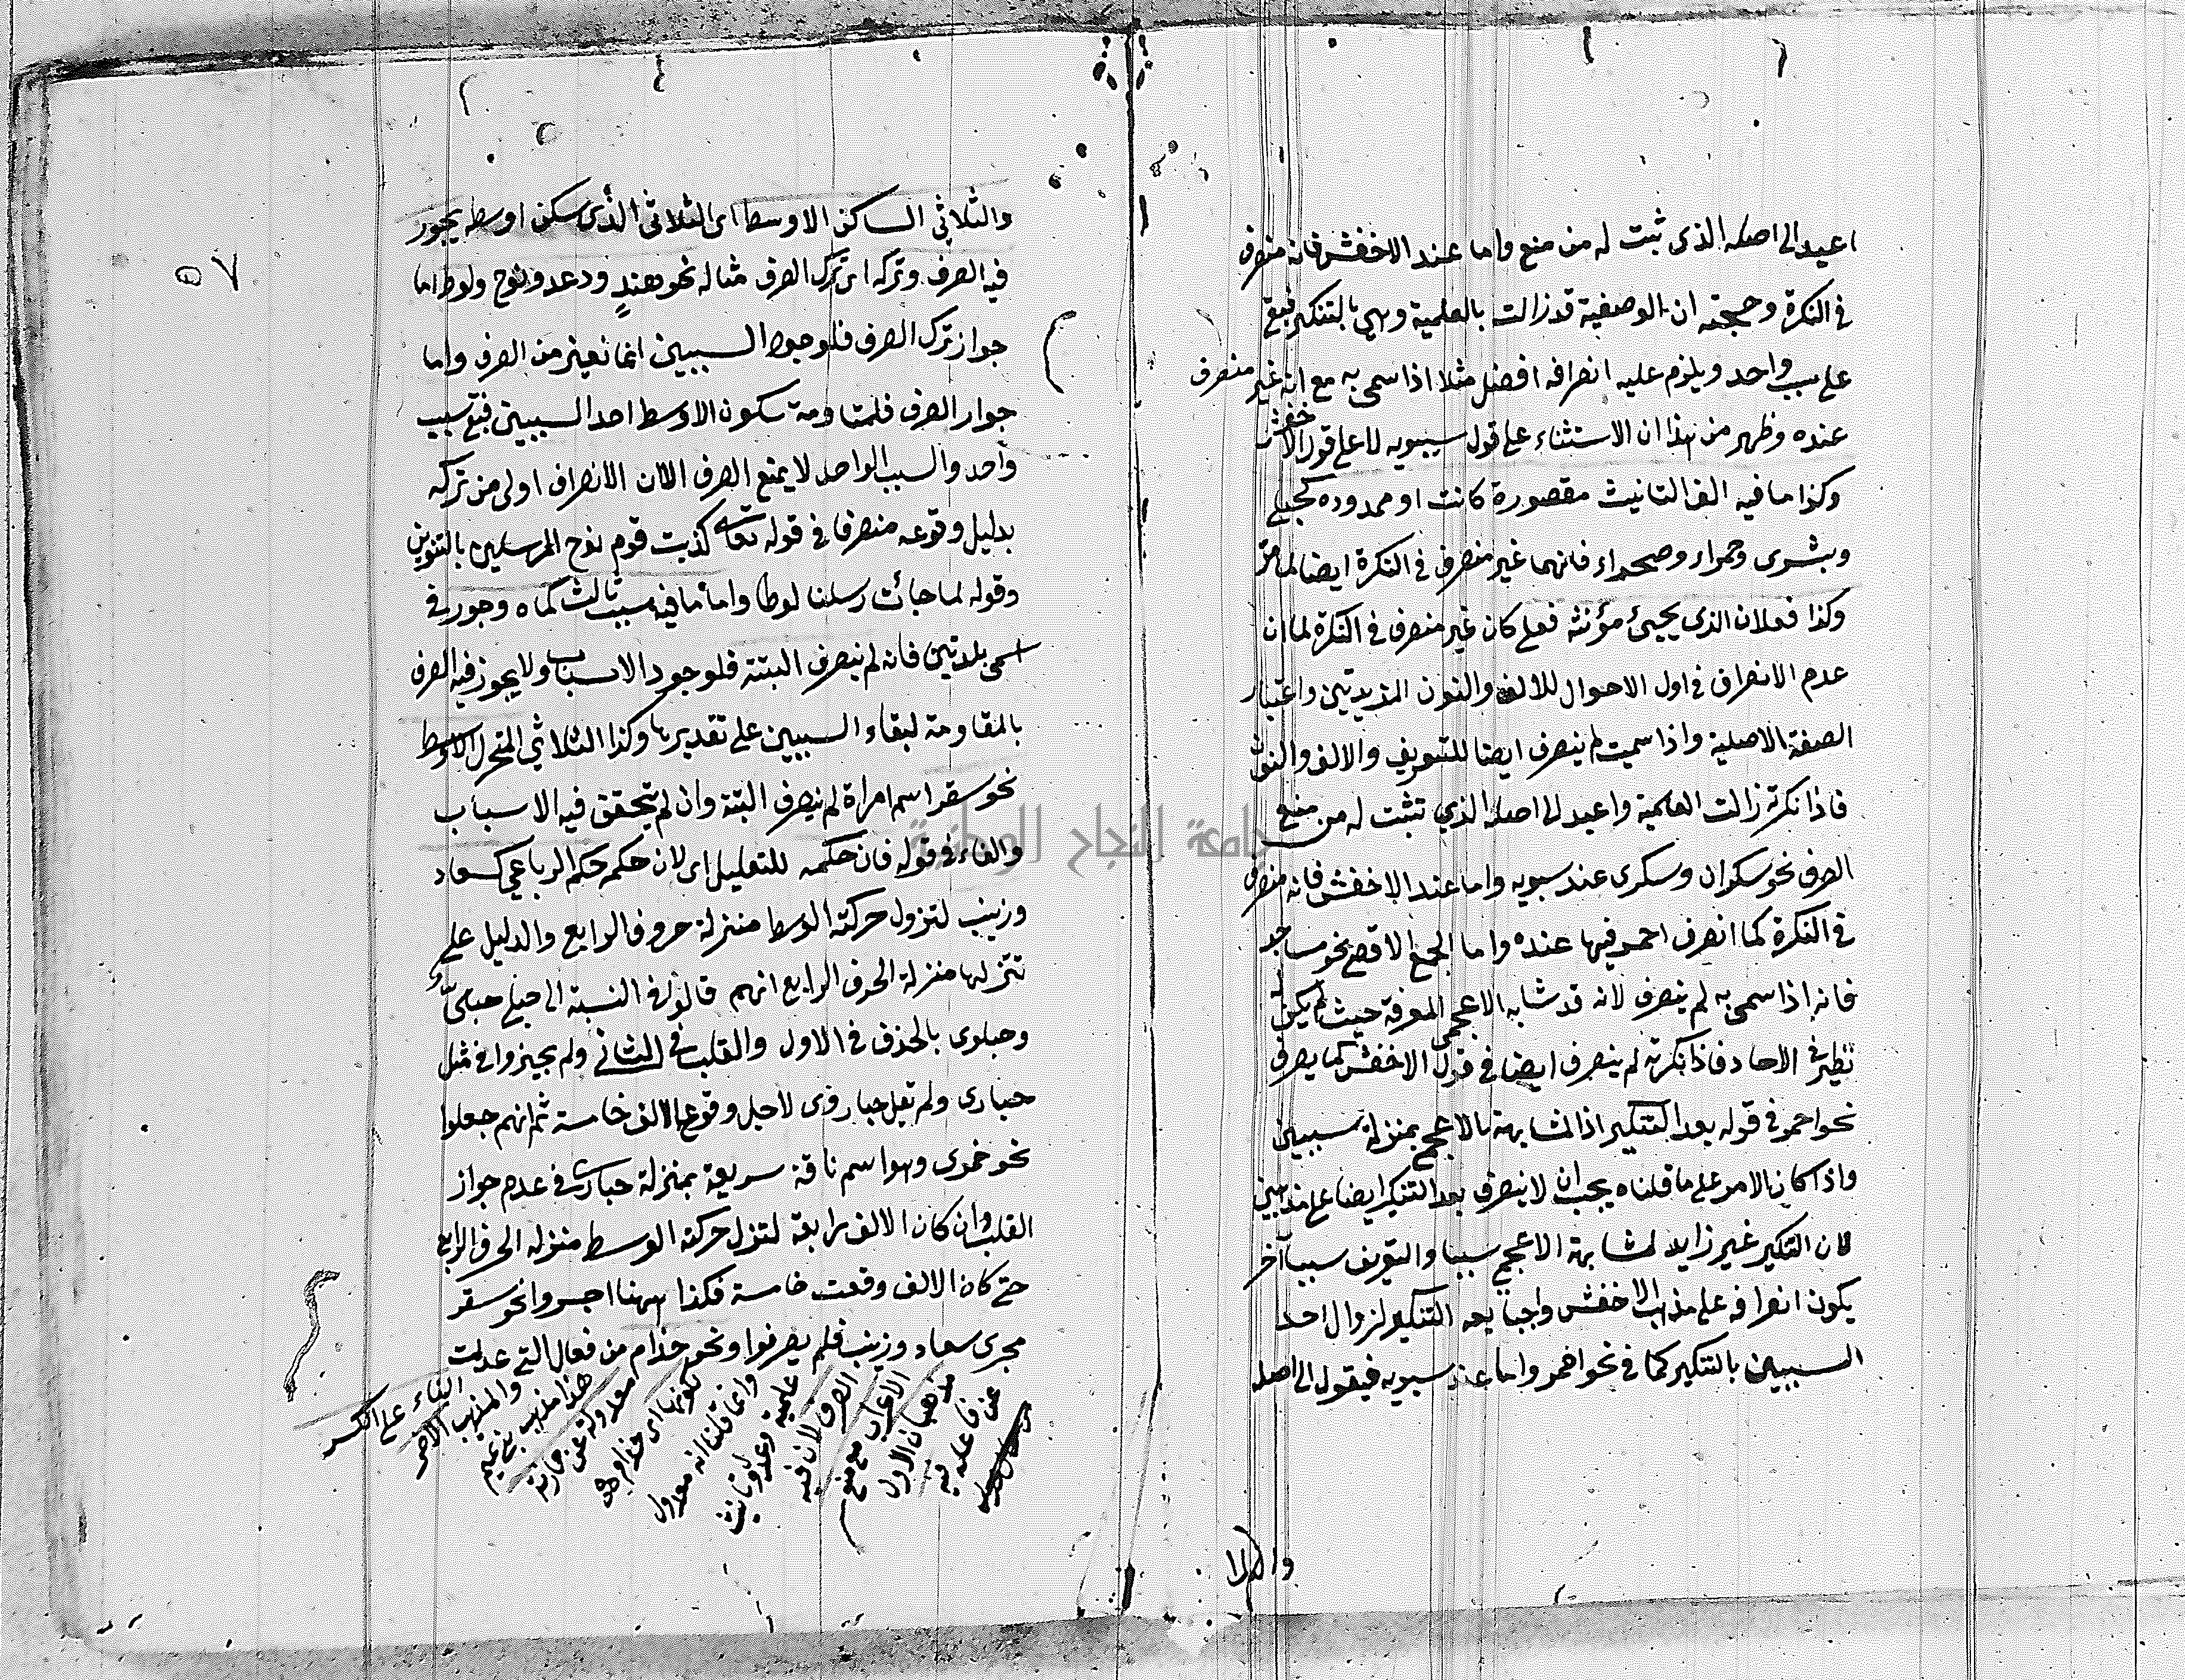 اعيد الى اصله الذى ثبت له من منع واما عند الاخفش فانه منصرف
فى النكرة وحجته ان الوصفية قد زالت بالعلمية وهى بالتنكير فبقى
على سبب واحد ويلزم عليه انصرافه افضل مثلا اذا سمى به مع انه غير منصرف
عنده وظهر من هذا ان الاستثناء على قول سيبويه لا على قول الاخفش
وكذا ما فيه الف التانيث مقصورة كانت او ممدوده كحبلى
وبشرى وحمراء وصحراء فانهما غير منصرف فى النكرة ايضا لما مر
وكذا فعلان الذى يجيئ مؤنثه فعلى كان غير منصرف فى النكرة لما ان
عدم الانصراف فى اول الاحوال للالف والنون المزيدتين واعتبار
الصفة الاصلية واذا سميت لم ينصرف ايضا للتعريف والالف والنون
فاذا نكرته زالت العلمية واعيد الى اصله الذي تثبت له من منع
الصرف نحو سكران وسكرى عند سيبويه واما عند الاخفش فانه منصرف
فى النكرة كما انصرف احمر فيها عنده واما الجمع الاقصى نحو مساجد
فانه اذا سمى به لم ينصرف لانه قد شابه الاعجمى المعرفة حيث لم يكن له
نظير فى الاحاد فاذا نكرته لم ينصرف ايضا فى قول الاخفش كما يصرف
نحو احمر فى قوله بعد التنكير اذ المشابهة بالاعجمى بمنزلة سببين
واذا كان الامر على ما قلناه يجب ان لا ينصرف بعد التنكير ايضا على مذهبين
لان التنكير غير زايد لمشابهة الاعجمى سببا والتعريف سببا آخر
يكون انصرافه على مذهب الاخفش واجبا بعد التنكير لزوال احد
السببين بالتنكير كما فى نحو احمر واما عند سيبويه فيقول الى اصله
٥٧
والثلاثى الساكن الاوسط اى الثلاثى الذى سكن اوسطه يجوز
فيه الصرف وتركه اى ترك الصرف مثاله نحو هندٍ ودعد ونوح ولوط اما
جواز ترك الصرف فلوجود السببين المانعين من الصرف واما
جواز الصرف فلمقاومة سكون الاوسط احد السببين فبقى سبب
واحد والسبب الواحد لا يمنع الصرف الا ان الانصراف اولى من تركه
بدليل وقوعه منصرفا فى قوله تعالى كذبت قوم نوح المرسلين بالتنوين
وقوله لما جائت رسلنا لوطا واما ما فيه سبب ثالث كماه وجور فى
اسمى بلدتين فانه لم ينصرف البتة فلوجود الاسباب ولا يجوز فيه الصرف
بالمقاومة لبقاء السببين على تقديرها وكذا الثلاثي المتحرك الاوسط
نحو سقر اسم امراة لم ينصرف البتة وان لم يتحقق فيه الاسباب
والفاء فى قوله فان حكمه للتعليل اى لان حكمه حكم الرباعي كسعاد
وزينب لتزول حركته الوسط منزلة حرف الرابع والدليل على
تنزلها منزلة الحرف الرابع انهم قالوا فى النسبة الى حبلى حبلىّ
وحبلوى بالحذف فى الاول والقلب فى الثانى ولم يجيزوا فى مثل
حبارى ولم يقل حباروى لاجل وقوع الالف خامسة ثم انهم جعلوا
نحو جمزى وهو اسم ناقة سريعة بمنزلة حبارى فى عدم جواز
القلب وان كان الالف رابعة لتنزل حركة الوسط منزلة الحرف الرابع
حتى كان الالف وقعت خامسة فكذا ههنا اجروا نحو سقر
مجرى سعاد وزينب فلم يصرفوا ونحو حذام من فعال التى عدلت
عن فاعله فيه
مذهبان الاول
الاعراب مع منع
الصرف لان فيه
علمية وعدل وتانيث
وانما قلنا انه معدول
لكونها اى حذام
معدولة عن حازمة
هذا مذهب بنى تميم
والمذهب الاخر
البناء على الكسر